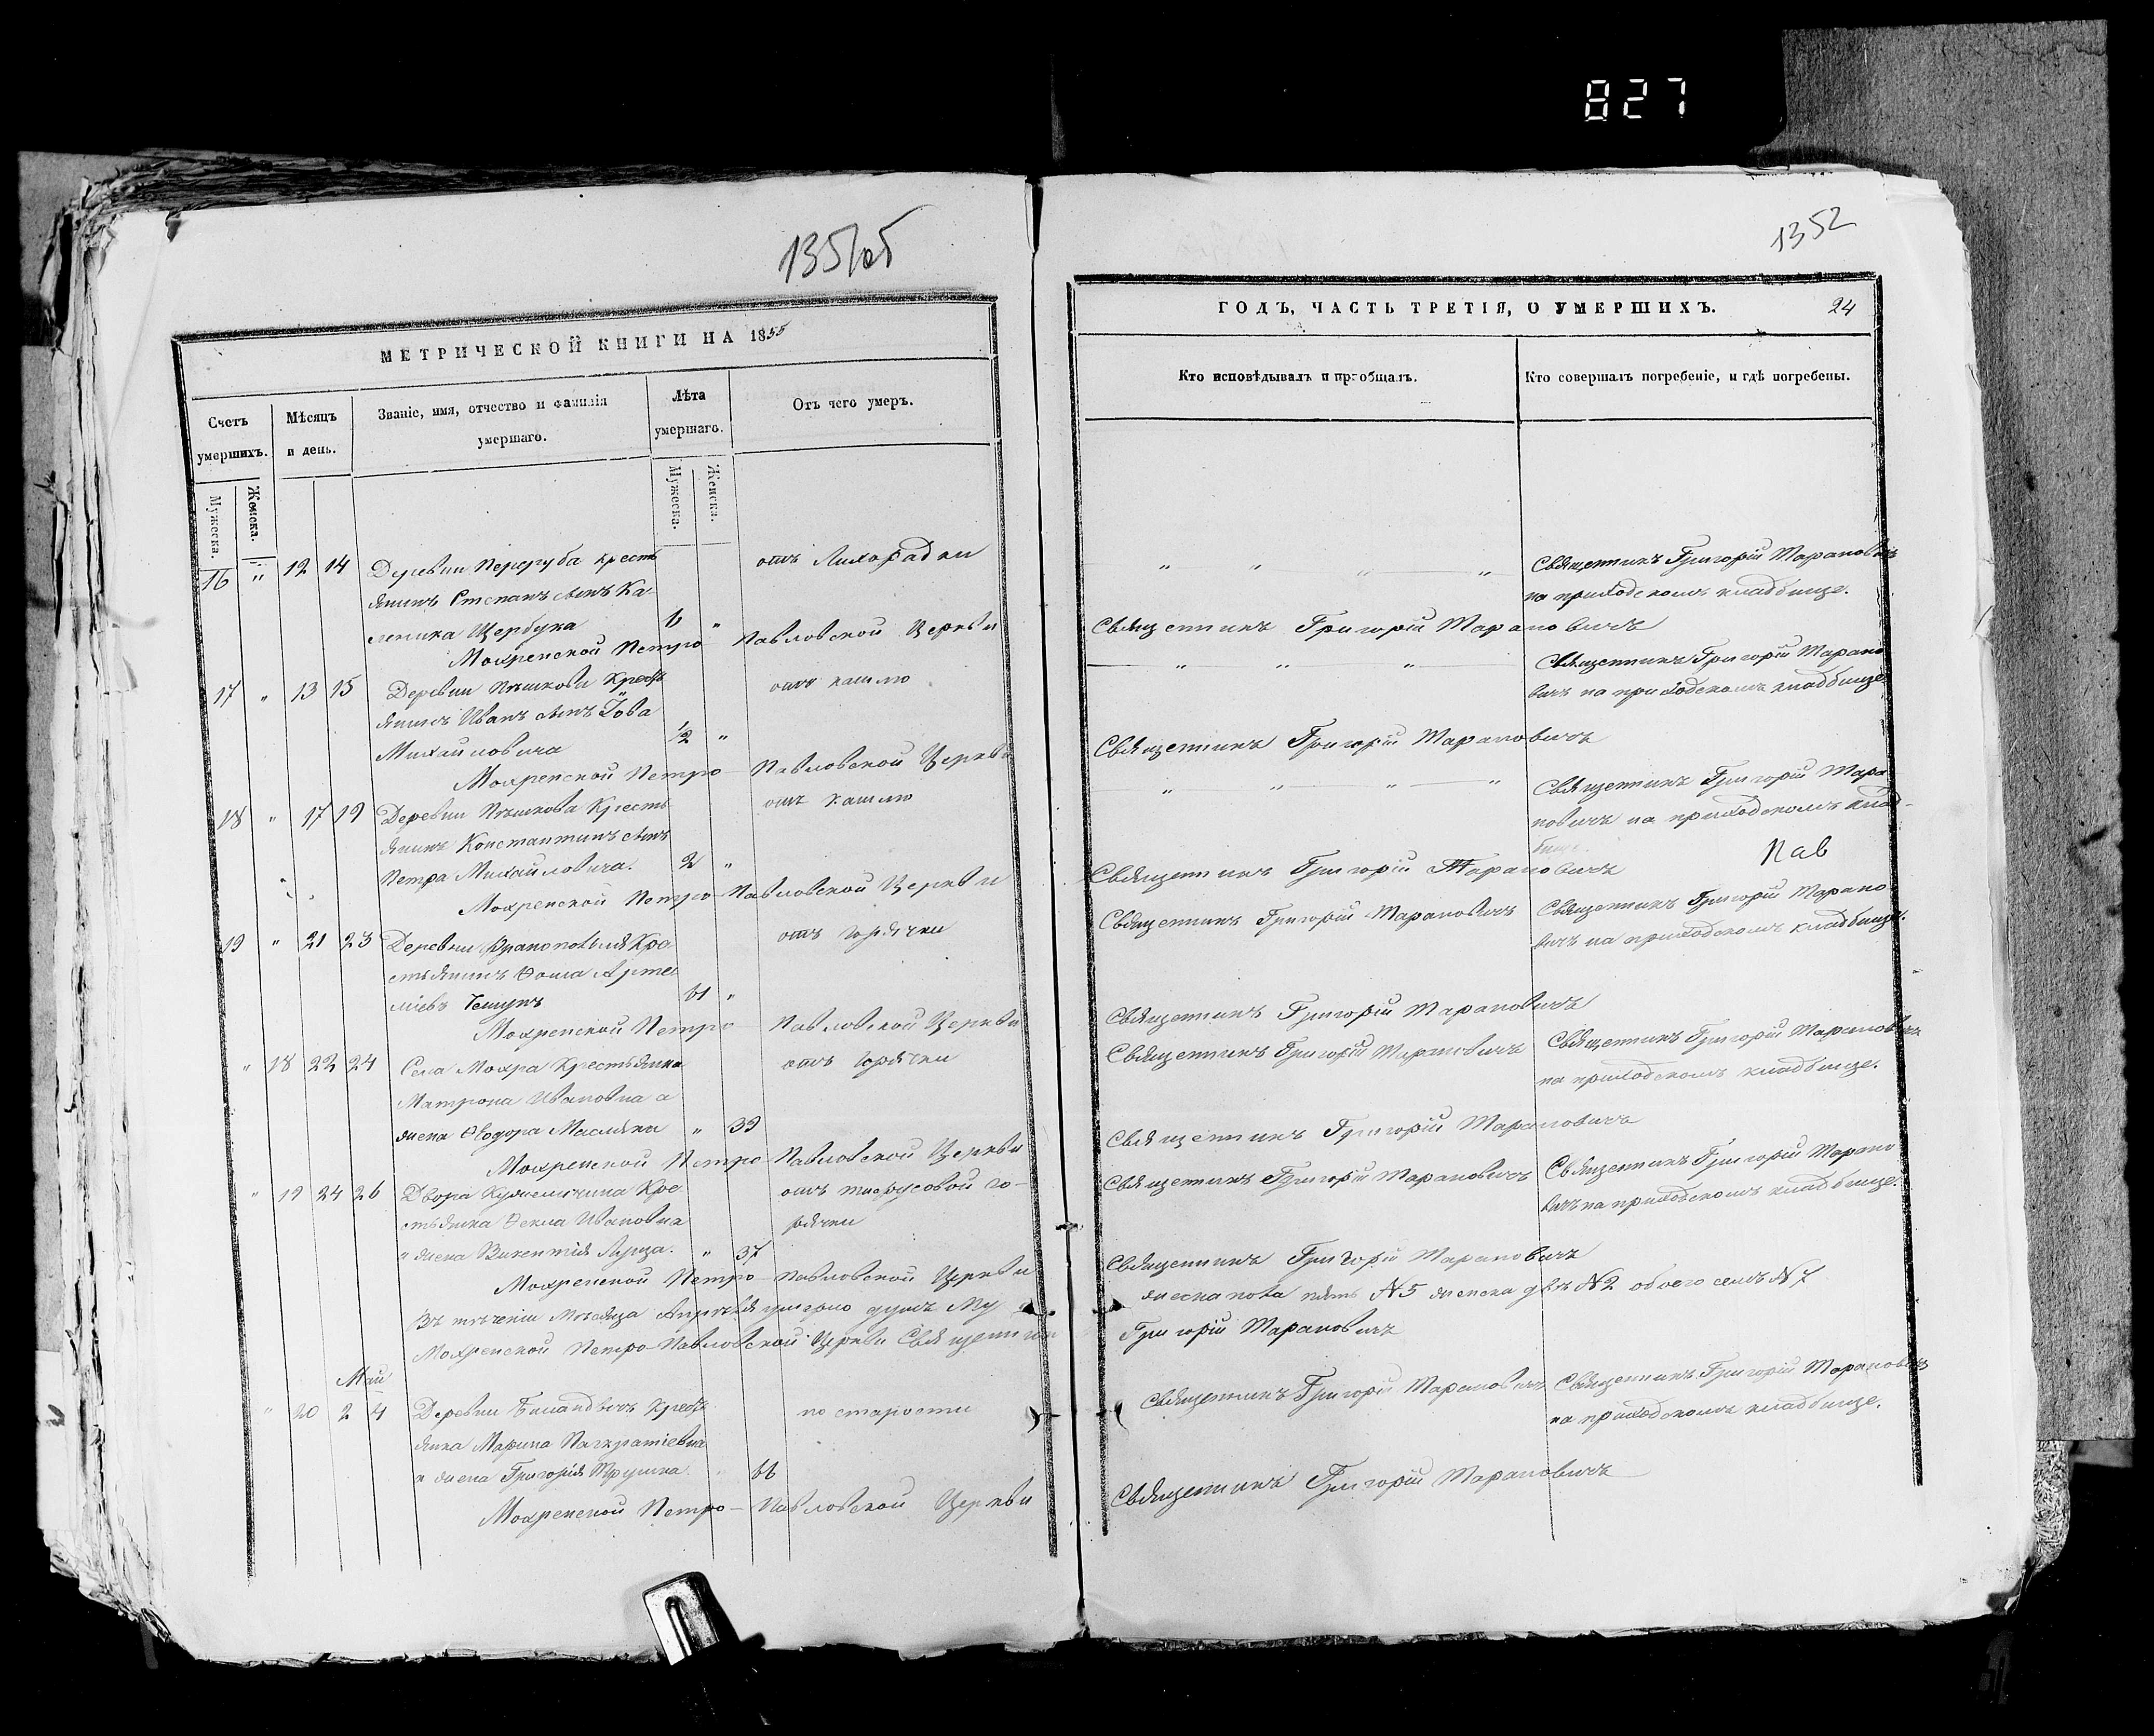 827
1351об
МЕТРИЧЕСКОЙ КНИГИ НА 1855
Счетъ умершихъ.
Мѣсяцъ и день.
Званіе, имя, отчество и фамилія умершаго.
Лѣта умершаго.
Отъ чего умеръ.
Мужеска.
Женска.
Мужеска.
Женска.
16 " 12 14 Деревни Перегуба кресть отъ Лихорадки
янинъ Степанъ сынъ Ка
леника Щербука 6 "
Мохренской Петро Павловской Церкви
17 " 13 15 Деревни Пѣшкови Кресть отъ кашлю
янинъ Иванъ сынъ Іова
Михайловича 1/2 "
Мохренской Петро Павловской Церкви
18 " 17 19 Деревни Пѣшкова Кресть отъ кашлю
янинъ Константинъ сынъ
Петра Михайловича. 2 "
Мохренской Петро Павловской Церкви
19 " 21 23 Деревни Кре отъ горячки
стьянинъ Ѳома Арте
міевъ 61 "
Мохренской Петро Павловской Церкви
" 18 22 24 Села Мохра Крестьянка отъ горячки
Матрона Ивановна а
жена Ѳеодора Масляка " 39
Мохренской Петро Павловской Церкви
" 19 24 26 Двора Кужеличина Кре отъ тифусовой го-
стьянка Ѳекла Ивановна рячки
" жена Викентія " 37
Мохренской Петро Павловской Церкви
Въ теченіи Мѣсяца Апрѣля умерло душъ му
Мохренской Петро-Павловской Церкви Священникъ
Май
" 20 2 4 Деревни Кресть по старости
янка Марина Панкратіевна
" жена Григорія Трушка " 66
Мохренской Петро-Павловской Церкви
1352
ГОДЪ, ЧАСТЬ ТРЕТІЯ, О УМЕРШИХЪ.
24
Кто исповѣдывалъ и пріобщалъ.
Кто совершалъ погребеніе, и гдѣ погребены.
" " " " Священникъ Григорій Тарановичъ
на приходскомъ кладбище.
Священникъ Григорій Тарановичъ
" " " Священникъ Григорій Тарано
вичъ на приходскомъ кладбище
Священникъ Григорій Тарановичъ
" " " " Священникъ Григорій Тара
новичъ на приходскомъ клад-
бище.
Пав
Священникъ Григорій Тарановичъ
Священникъ Григорій Тарановичъ Священникъ Григорій Тарано
вичъ на приходскомъ кладбище.
Священникъ Григорій Тарановичъ
Священникъ Григорій Тарановичъ Священникъ Григорій Тарановичъ
на приходскомъ кладбище.
Священникъ Григорій Тарановичъ
Священникъ Григорій Тарановичъ Священникъ Григорій Тарано
вичъ на приходскомъ кладбище.
Священникъ Григорій Тарановичъ
жеска пола пять №5 женска двѣ №2 обоего семъ №7
Григорій Тарановичъ
Священникъ Григорій Тарановичъ Священникъ Григорій Тарановичъ
на приходскомъ кладбище.
Священникъ Григорій Тарановичъ